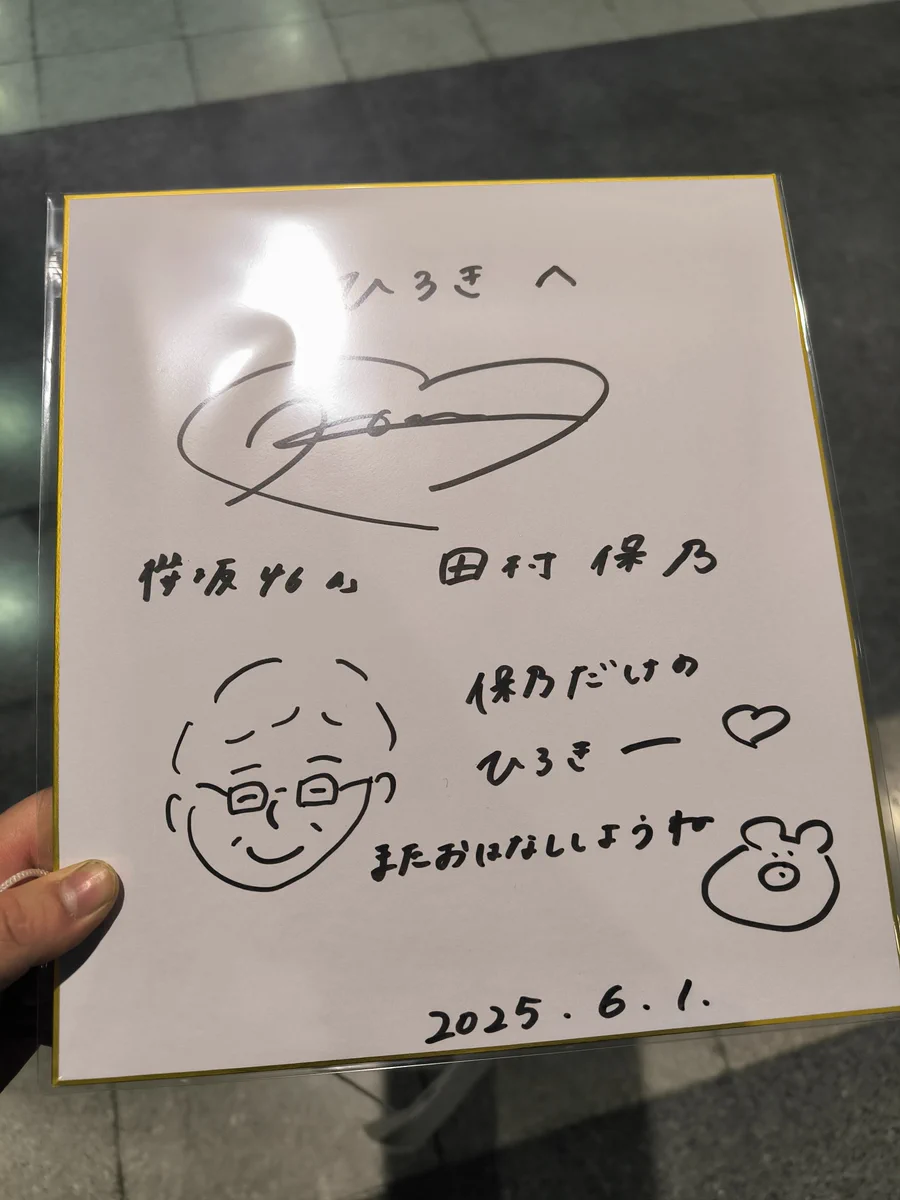 ひろき へ
櫻坂46 田村 保乃
保乃だけの
ひろきー ♡
またおはなししようね
2025.6.1.